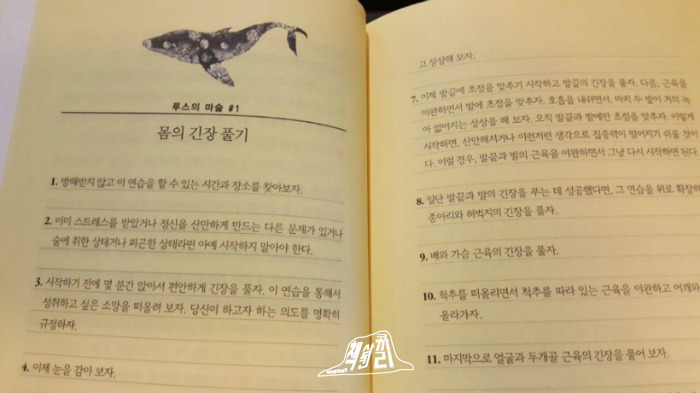 루스의 마술 #1
몸의 긴장 풀기
1. 방해받지 않고 이 연습을 할 수 있는 시간과 장소를 찾아보자.
2. 이미 스트레스를 받았거나 정신을 산만하게 만드는 다른 문제가 있거나
술에 취한 상태거나 피곤한 상태라면 아예 시작하지 말아야 한다.
3. 시작하기 전에 몇 분간 앉아서 편안하게 긴장을 풀자. 이 연습을 통해서
성취하고 싶은 소망을 떠올려 보자. 당신이 하고자 하는 의도를 명확히
규정하자.
4. 이제 눈을 감아 보자.
고 상상해 보자.
7. 이제 발끝에 초점을 맞추기 시작하고 발끝의 긴장을 풀자. 다음, 근육을
이완하면서 발에 초점을 맞추자. 호흡을 내쉬면서, 마치 두 발이 거의 녹
아 없어지는 상상을 해 보자. 오직 발끝과 발에만 초점을 맞추자. 이렇게
시작하면, 산만해지거나 이런저런 생각으로 집중력이 떨어지기 쉬울 것이
다. 이럴 경우, 발끝과 발의 근육을 이완하면서 그냥 다시 시작하면 된다
8. 일단 발끝과 발의 긴장을 푸는 데 성공했다면, 그 연습을 위로 확장하
종아리와 허벅지의 긴장을 풀자.
9. 배와 가슴 근육의 긴장을 풀자.
10. 척추를 떠올리면서 척추를 따라 있는 근육을 이완하고 어깨와
올라가자.
11. 마지막으로 얼굴과 두개골 근육의 긴장을 풀어 보자.